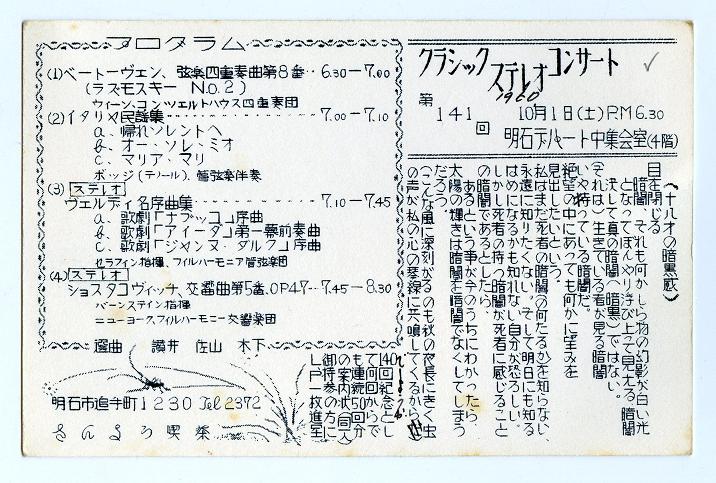 プログラム
(1)ベートーヴェン、弦楽四重奏曲第8番‥6.30-7.00
(ラズモスキー No.2)
ウィーン、コンツェルトハウス四重奏団
(2)イタリヤ民謡集 7.00-7.10
a、帰れソレントへ
b、オー・ソレ・ミオ
c、マリア・マリ
ポッジ(テノール)、管弦楽伴奏
(3)ステレオ
ヴェルディ名序曲集 7.10-7.45
a、歌劇「ナブッコ」序曲
b、歌劇「アイーダ」第一幕前奏曲
c、歌劇「ジャンヌ・ダルク」序曲
セラフィン指揮、フィルハーモニア管弦楽団
(4)ステレオ
ショスタコヴィッチ、交響曲第5番、OP47‥7.45-8.30
バーンステイン指揮
ニューヨークフィルハーモニー交響楽団
選曲 讃井 佐山 木下
明石市追手町1230 Tel 2372
さんよう喫茶
クラシック ステレオ コンサート
1960
第141回 10月1日(土)P.M6.30
明石デパート中集会室(4階)
(十八才の暗黒感)
目を閉じる
暗闇、それも何かしら物の幻影が白い光
となってぼんやり浮び上って見える暗闇
決して真の暗闇(暗黒)ではない。
(それは)生きている者が見る暗闇
いや持っている暗闇だ。
絶望の中にあっても何かに望みを
見出したいという。
私はまだ死者の暗闇の何たるかを知らない、
永遠に知りたくない。そして明日にも知る
はめになるかも知れない自分が恐ろしい。
しかし死者の持つ暗闇が死者に感じること
の暗闇であるとしたら、
あるという事が今のうちにわかったら
太陽の輝きは暗闇を暗闇でなくしてしまう
だろう。
(こんな風に深刻がるのも秋の夜長にきく虫
の声が私の心の琴線に共鳴してくるから)
140回記念とし
て何回からで
も連続50回分
の案内状(同人
御持参の方に
LP一枚進呈